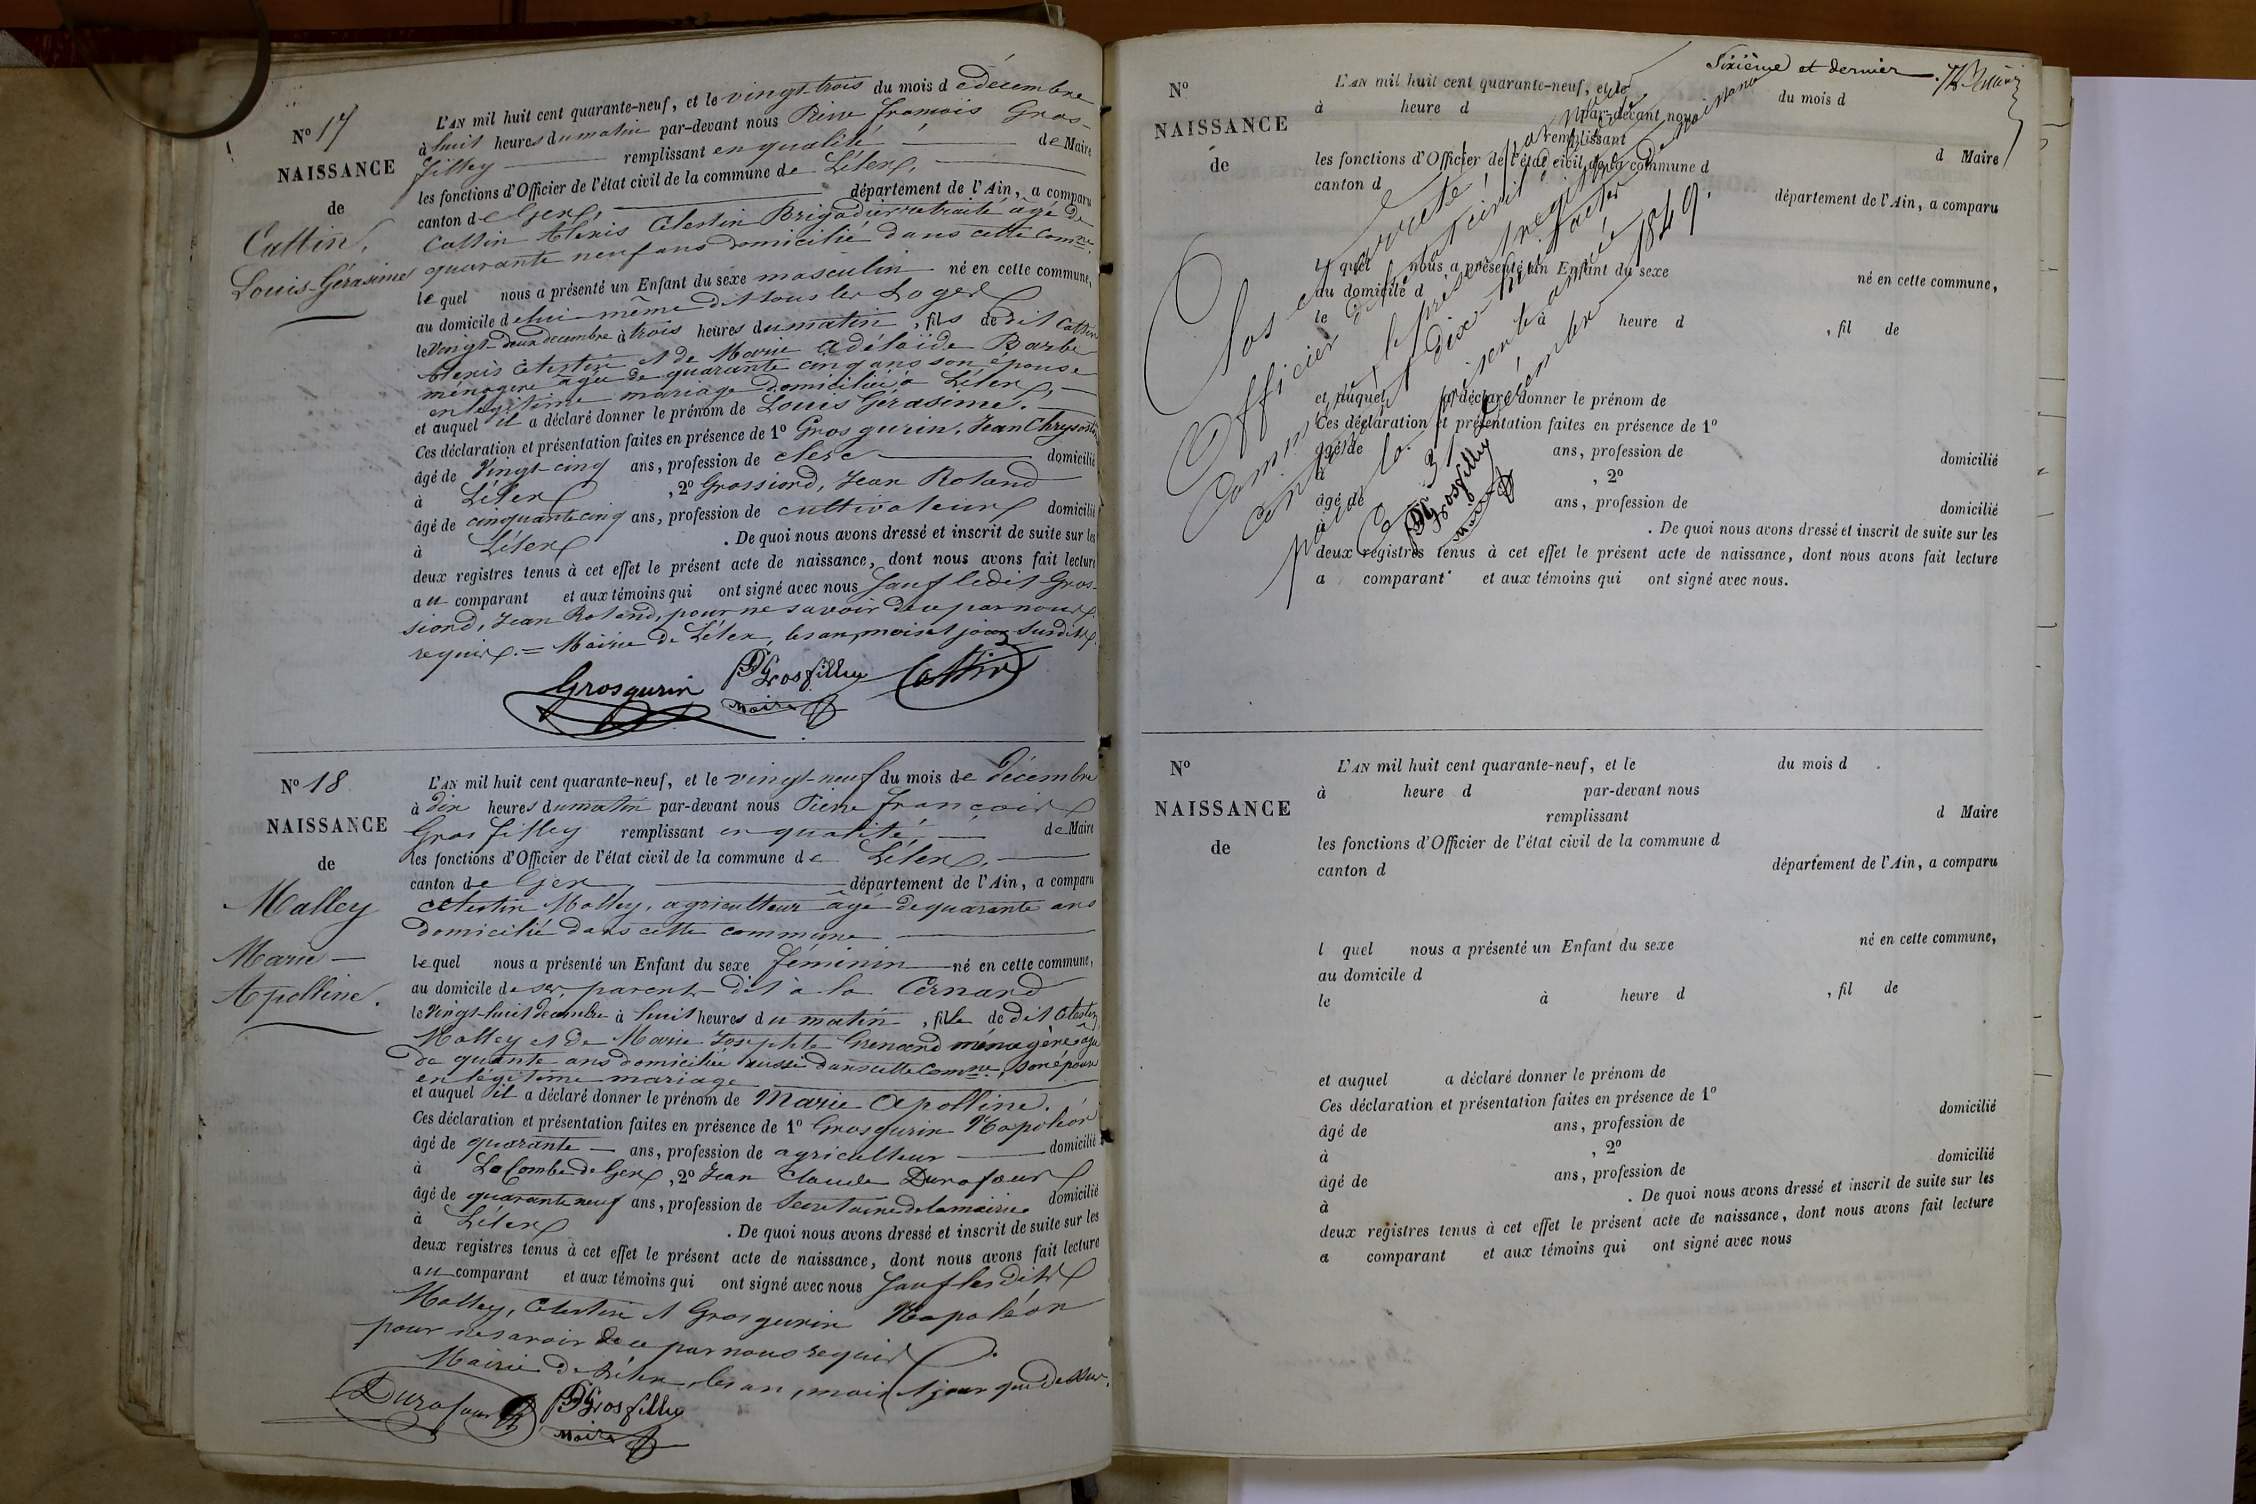 N° 17
NAISSANCE
de
Cattin,
Louis-Gérasime
L'AN mil huit cent quarante-neuf, et le vingt-trois du mois de décembre
à huit heures du matin par-devant nous Pierre François Gros-
filley remplissant en qualité de Maire
les fonctions d'Officier de l'état civil de la commune de Lélex,
canton de Gex, département de l'Ain, a comparu
Cattin Alexis Célestin Brigadier retraité âgé de
quarante neuf ans domicilié dans cette Comne.
lequel nous a présenté un Enfant du sexe masculin né en cette commune,
au domicile de lui-même dit sous les Loges
le vingt-deux décembre à trois heures du matin, fils de dit Cattin
Alexis Célestin et de Marie Adélaïde Barbe
ménagère âgée de quarante cinq ans son épouse
en légitime mariage domiciliée à Lélex,
et auquel il a déclaré donner le prénom de Louis Gérasime.
Ces déclaration et présentation faites en présence de 1° Gros gurin, Jean Chrysostôme
âgé de vingt-cinq ans, profession de clerc domicilié
à Lélex, 2° Grossiord, Jean Roland
âgé de cinquante cinq ans, profession de cultivateur domicilié
à Lélex. De quoi nous avons dressé et inscrit de suite sur les
deux registres tenus à cet effet le présent acte de naissance, dont nous avons fait lecture
au comparant et aux témoins qui ont signé avec nous sauf ledit Gros-
siord, Jean Roland, pour ne savoir de ce par nous
requis. = Mairie de Lélex, les an, mois et jour susdits.
Grosgurin PF Grosfilley Cattin
Maire
N° 18
NAISSANCE
de
Malley
Marie –
Apolline.
L'AN mil huit cent quarante-neuf, et le vingt-neuf du mois de Décembre
à dix heures du matin par-devant nous Pierre François
Gros filley remplissant en qualité de Maire
les fonctions d'Officier de l'état civil de la commune de Lélex,
canton de Gex département de l'Ain, a comparu
Célestin Malley, agriculteur âgé de quarante ans
domicilié dans cette commune
lequel nous a présenté un Enfant du sexe féminin né en cette commune,
au domicile de ses parents dit à la
le vingt-huit décembre à huit heures du matin, fille de dit Célestin
Malley et de Marie Josephte Grenard ménagère âgée
de quante ans domiciliée aussi dans cette Comne, son épouse
en légitime mariage
et auquel il a déclaré donner le prénom de Marie Apolline.
Ces déclaration et présentation faites en présence de 1° Grosgurin Napoléon
âgé de quarante – ans, profession de agriculteur domicilié
à La Combe de Gex, 2° Jean Claude Durafour
âgé de quarante neuf ans, profession de Secrétaire de la mairie domicilié
à Lélex. De quoi nous avons dressé et inscrit de suite sur les
deux registres tenus à cet effet le présent acte de naissance, dont nous avons fait lecture
au comparant et aux témoins qui ont signé avec nous sauf les dits
Malley, Célestin et Gros gurin Napoléon
pour ne savoir de ce par nous requis.
Mairie de Lélex, les an, mois et jour que dessus.
Durafour PF Grosfilley
Maire
Sixième et dernier.
N°
NAISSANCE
de
L'AN mil huit cent quarante-neuf, et le du mois d
à heure d par-devant nous
remplissant d Maire
les fonctions d'Officier de l'état civil de la commune d
canton d département de l'Ain, a comparu
l quel nous a présenté un Enfant du sexe né en cette commune,
au domicile d
le à heure d , fil de
et auquel a déclaré donner le prénom de
Ces déclaration et présentation faites en présence de 1°
âgé de ans, profession de domicilié
à , 2°
âgé de ans, profession de domicilié
à . De quoi nous avons dressé et inscrit de suite sur les
deux registres tenus à cet effet le présent acte de naissance, dont nous avons fait lecture
a comparant et aux témoins qui ont signé avec nous.
Clos et arrêté par nous
Officier de l'état civil de
le présent registre de naissance
contenant dix-huit actes
pour la présente année 1849.
Ce 31 Décembre
PF Grosfilley
Maire
N°
NAISSANCE
de
L'AN mil huit cent quarante-neuf, et le du mois d
à heure d par-devant nous
remplissant d Maire
les fonctions d'Officier de l'état civil de la commune d
canton d département de l'Ain, a comparu
l quel nous a présenté un Enfant du sexe né en cette commune,
au domicile d
le à heure d , fil de
et auquel a déclaré donner le prénom de
Ces déclaration et présentation faites en présence de 1°
âgé de ans, profession de domicilié
à , 2°
âgé de ans, profession de domicilié
à . De quoi nous avons dressé et inscrit de suite sur les
deux registres tenus à cet effet le présent acte de naissance, dont nous avons fait lecture
a comparant et aux témoins qui ont signé avec nous